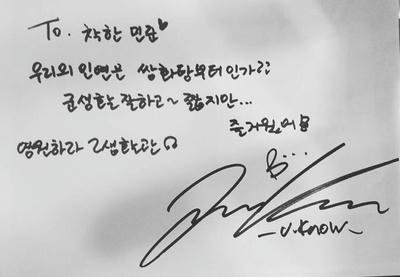 To. 착한 민준♥
우리의 인연은 쌍화탕부터인가?
군성활는 잘하고~ 짧지만...
즐거웠어
영원하라 그생활관
B...
-U.Know-